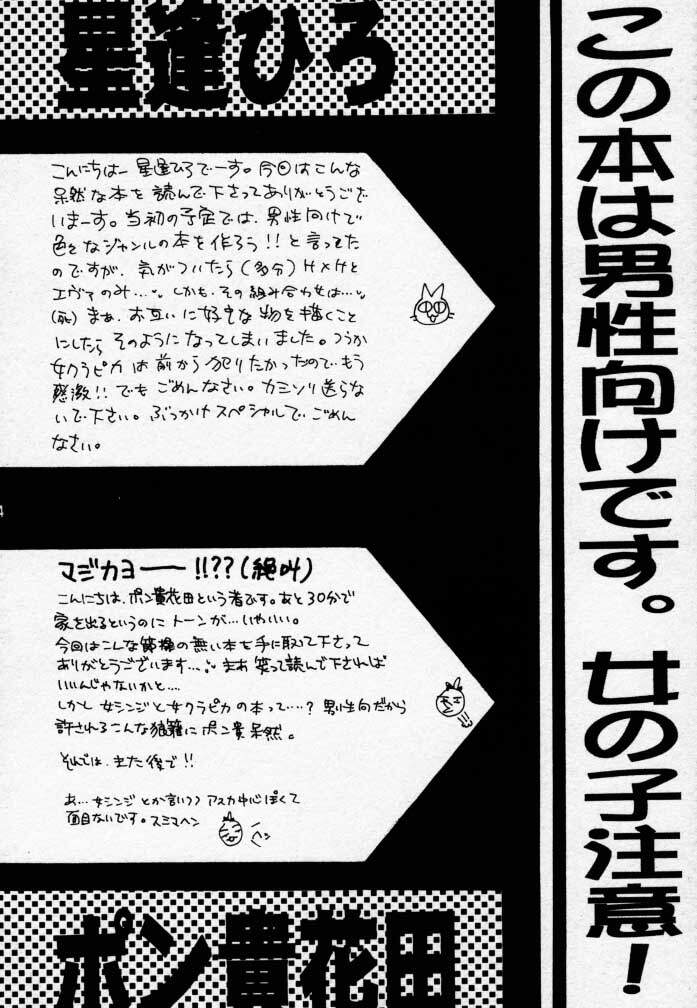 この本は男性向けです。女の子注意!
星逢ひろ
こんにちはー 星逢ひろでーす。今回はこんな
呆然な本を読んで下さってありがとうござ
いまーす。当初の予定では、男性向けで
色々なジャンルの本を作ろう!!と言ってた
のですが、気がついたら(多分)H×Hと
エヴァのみ...。しかも、その組み合わせは...。
(死)まぁ、お互いに好きな物を描くこと
にしたら そのようになってしまいました。つうか
女クラピカ は前から犯りたかったので、もう
感激!!でもごめんなさい。カミソリ送らな
いで下さい。ぶっかけスペシャルで ごめん
なさい。
4
マジカヨーー!!??(絶叫)
こんにちは、ポン貴花田という者です。あと30分で
家を出るというのにトーンが...。いやいい。
今回はこんな節操の無い本を手に取って下さって
ありがとうございます...。まあ 笑って読んで下されば
いいんじゃないかと....
しかし 女シンジと女クラピカ の本って....?男性向だから
許されるこんな狼籍に ポン貴 呆然。
それでは、また後で!!
あ...女シンジとか言いつつ アスカ中心ぽくて
面目ないです。スミマヘン
ヘン
ポン貴花田